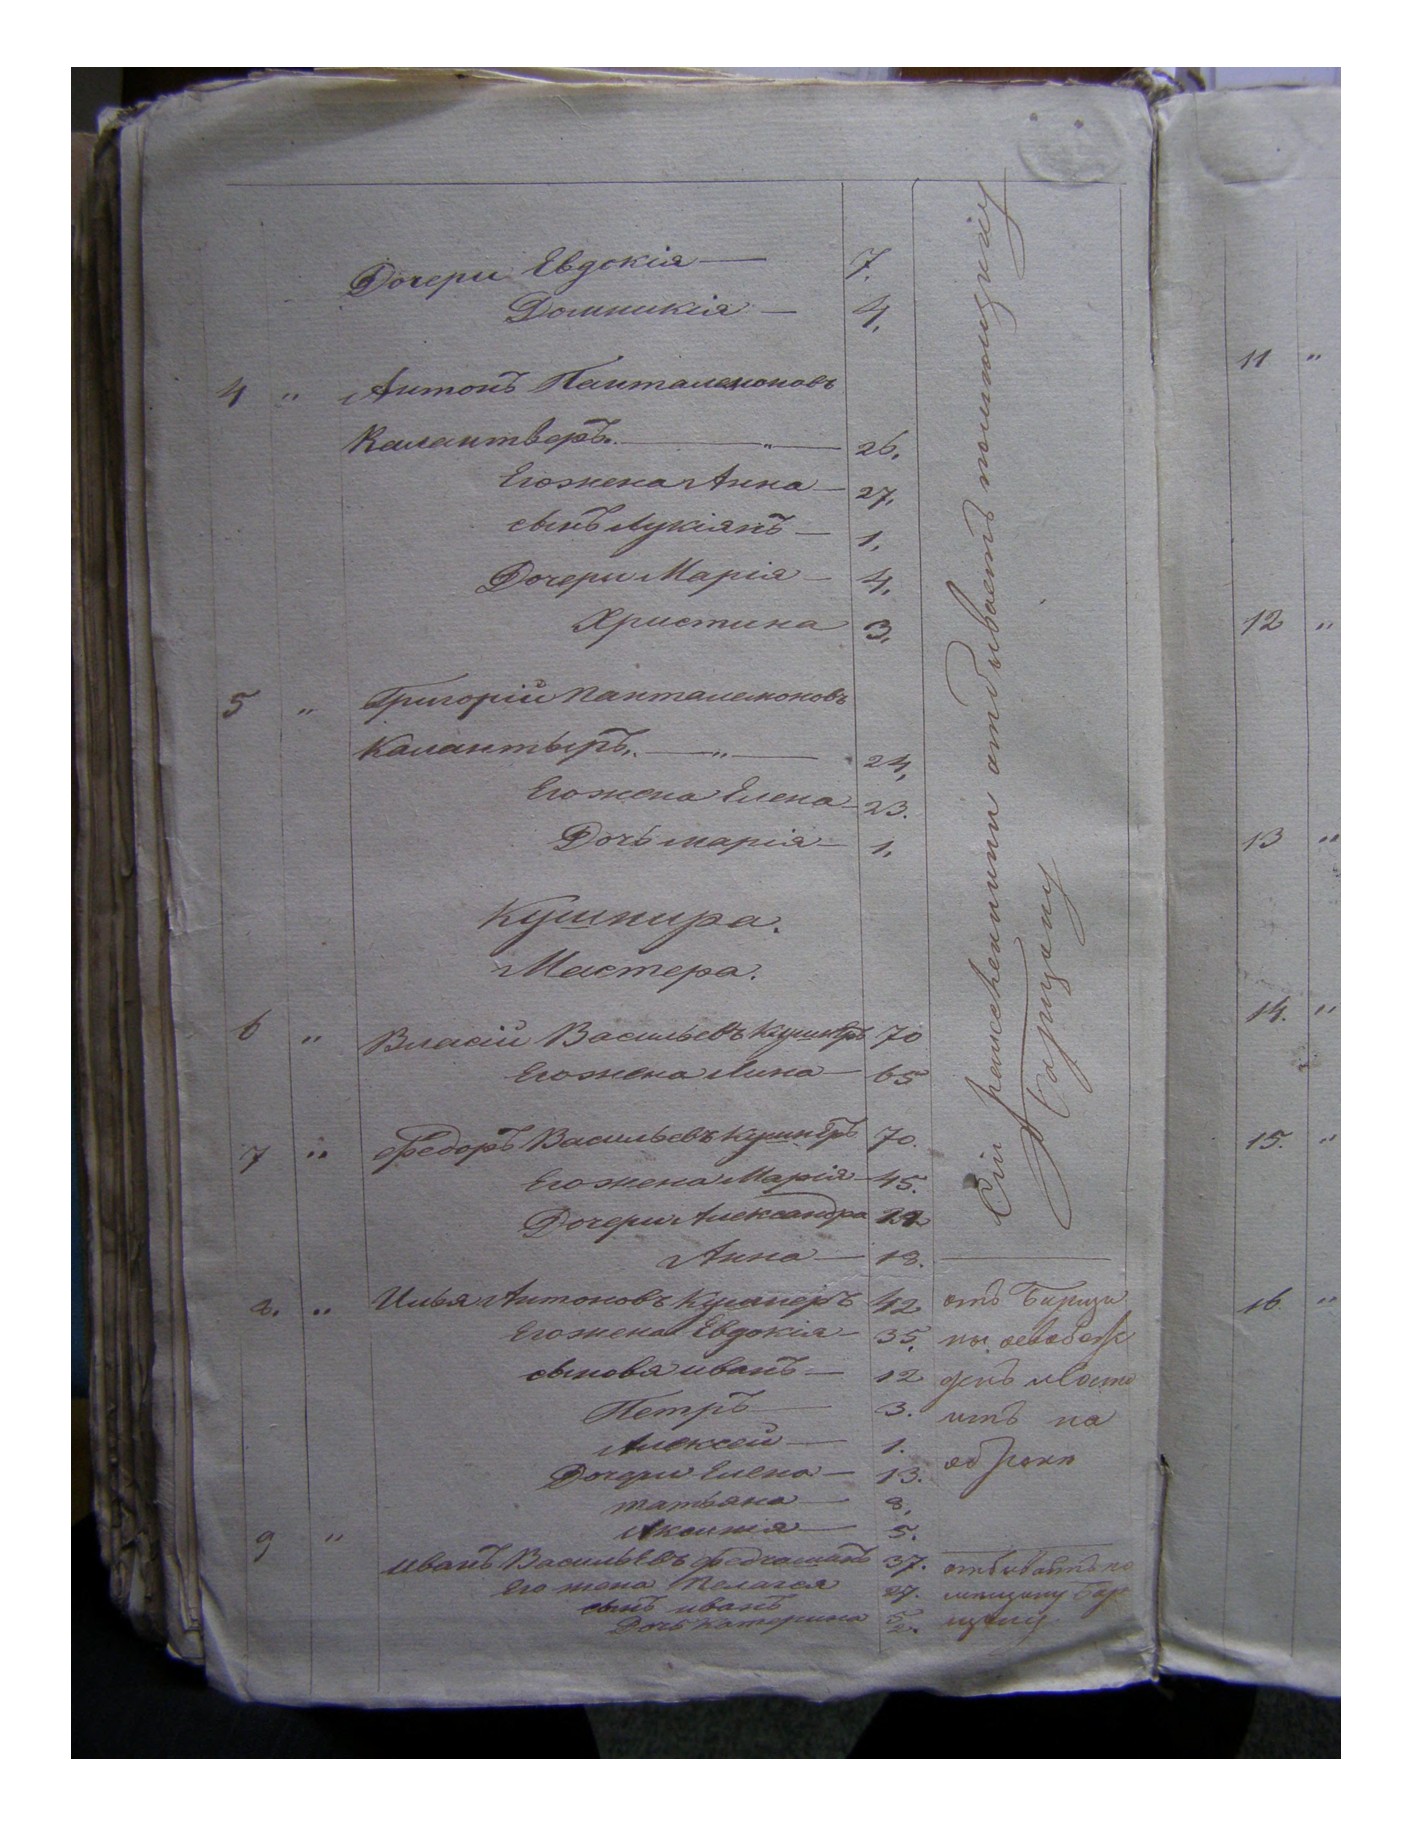 Дочери Евдокія — 7.
Домникія — 4.
4 " Антонъ Панталемоновъ
Калантверъ. — " — 26.
Его жена Анна — 27.
сынъ Лукіянъ — 1.
Дочери Марія — 4.
Христина 3.
5 " Григорій Панталемоновъ
Калантыръ. — " — 24.
Его жена Елена — 23.
Дочь марія — 1.
Кушнира.
Мастера.
6 " Власій Васильевъ Кушнѣръ 70
Его жена Анна — 65
7 " Федоръ Васильевъ Кушнѣръ 70.
Его жена Марія — 45.
Дочери Александра
Анна — 18.
8. " Илья Антоновъ Кушнеръ 42
Его жена Евдокія — 35.
сыновя иванъ — 12
Петръ — 3.
Алексей — 1.
Дочери Елена — 13.
татьяна — 8.
Аксинія — 5.
9 " иванъ Васильевъ 37.
Его жена Пелагея 27.
сынъ иванъ 5
Дочь катерина 2.
Сіи ремесленники отбываетъ помѣщику
барщину
отъ Барщи
ны освобож
денъ и
итъ на
оброкѣ
отбываетъ по
мещику бар
щину
11 "
12 "
13 "
14. "
15. "
16 "